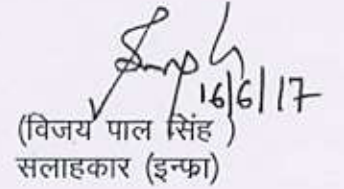 16/6/17
(विजय पाल सिंह )
सलाहकार (इन्फ्रा)